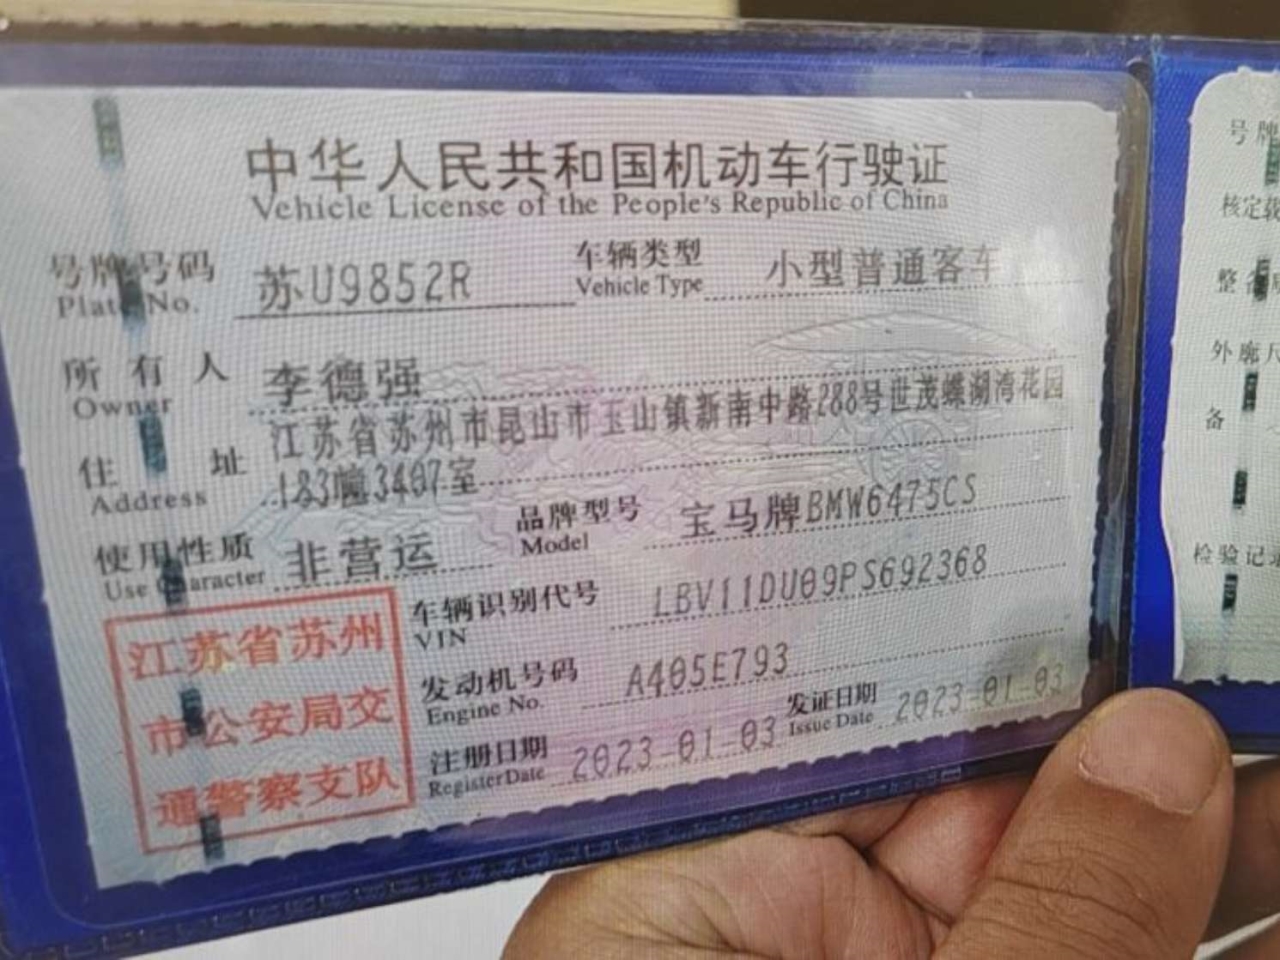 中华人民共和国机动车行驶证
Vehicle License of the People's Republic of China
号牌号码 苏U9852R 车辆类型 小型普通客车
Plate No. Vehicle Type
所有人 李德强
Owner
住址 江苏省苏州市昆山市玉山镇新南中路288号世茂蝶湖湾花园
Address 183幢3407室
使用性质 非营运 品牌型号 宝马牌BMW6475CS
Use Character Model
江苏省苏州
市公安局交
通警察支队
车辆识别代号 LBV11DU09PS692368
VIN
发动机号码 A405E793
Engine No.
注册日期 2023-01-03 发证日期 2023-01-03
Register Date Issue Date
号牌
核定载
整备
外廓尺
备
检验记录